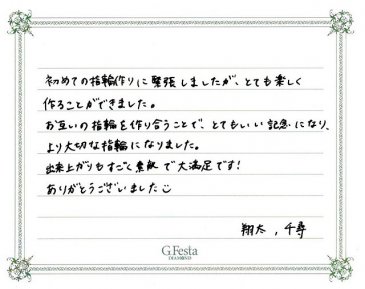 初めての指輪作りに緊張しましたが、とても楽しく
作ることができました。
お互いの指輪を作り合うことで、とてもいい記念になり、
より大切な指輪になりました。
出来上がりもすごく素敵で大満足です!
ありがとうございました
翔太,千尋
G.Festa
DIAMOND